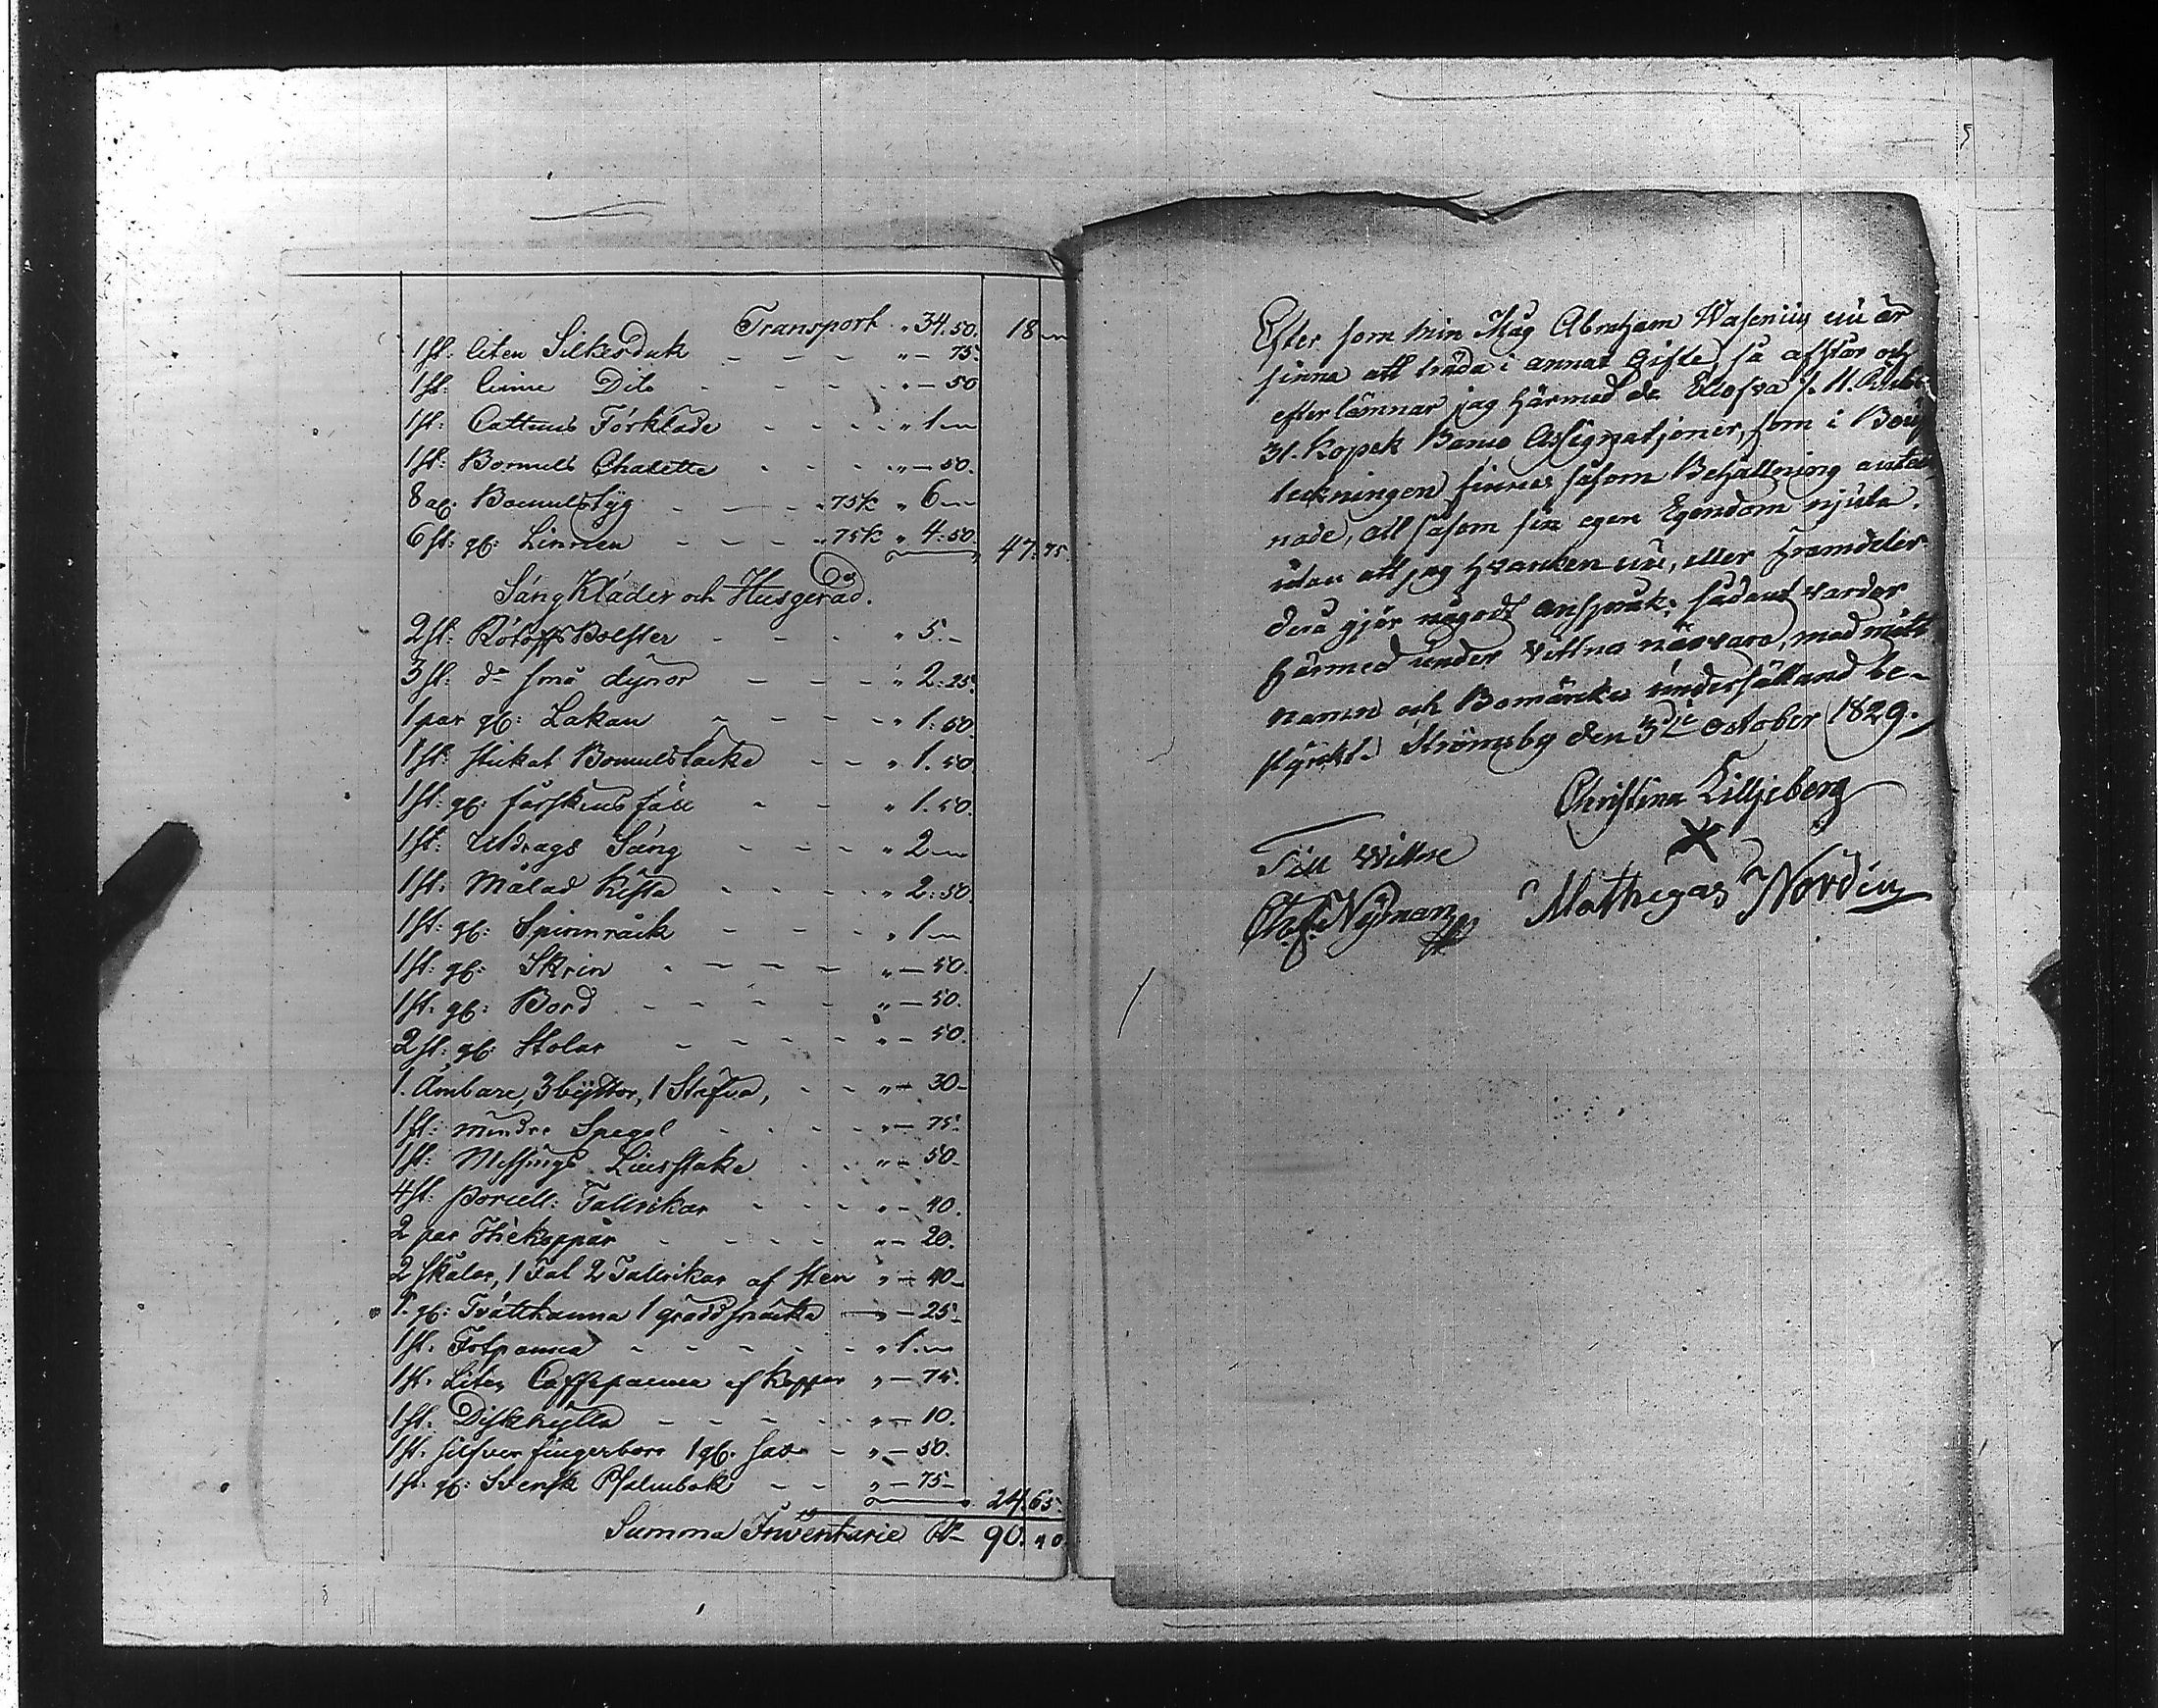 Transport " 34.50. 18 "
1 st: liten Silkesduk " — 75.
1 st: linne Dito " — 50
1 st: Cattuns Förkläde " 1 —
1 st: Bomuls Chalette " — 50.
8 al: Bomulstyg " 75 k " 6 —
6 st: gl: Linnen " 75 k " 4:50. 47:75.
Sängkläder och Husgeråd.
2 st: Bolster " 5. —
3 st: do små dynor " 2:25.
1 par gl: Lakan " 1:50.
1 st: stickat Bomulstäcke " 1.50.
1 st: gl: fårskins fäll " 1.50.
1 st: Utdrags Säng " 2 —
1 st: Målad Kista " 2:50.
1 st: gl: Spinnråck " 1 —
1 st: gl: Skrin " — 50.
1 st: gl: Bord " — 50.
2 st: gl: Stolar " — 50.
1. Ämbare, 3 byttor, 1 Stäfva, " — 30 —
1 st: mindre Spegel " — 75.
1 st: Messings Liusstake " — 50 —
4 st: porcell: Tallrikar " — 40.
2 par Thekoppar " — 20.
2 skålar, 1 Fat 2 Tallrikar af sten " — 40 —
1. gl: Tvättkanna 1 grädd snäcka " — 25 —
1 st: Fotpanna " 1. —
1 st. Liten Caffepanna af koppar " — 75.
1 st: Diskhylla " — 10.
1 st. silfver fingerborr 1 gl. sax " — 50.
1 st: gl: Svensk Psalmbok " — 75 — 24.65.
Summa Inventarie 90.40.
Efter som min Måg Abraham Wasenius nu är
sinna att träda i annat Gifte, så afstår och
efterlämnar jag härmed de Elofva /. 11. Rub:
31. Kopek Banco Assignatjoner, som i Boup
teckningen finnes såsom Behållning anteck
nade, att såsom sin egen Egendom njuta.
utan att jag hvarken nu, eller framdeles
derå gjör någodt anspråk; sådant varder
härmed under vittnes närvaro, med mitt
namn och Bomärcke undersättand be-
styrckt. Strömsby den 3dje October 1829.
Christina Lilljeberg
X
Till Wittne
Olof Nyman Mathegas Nordin